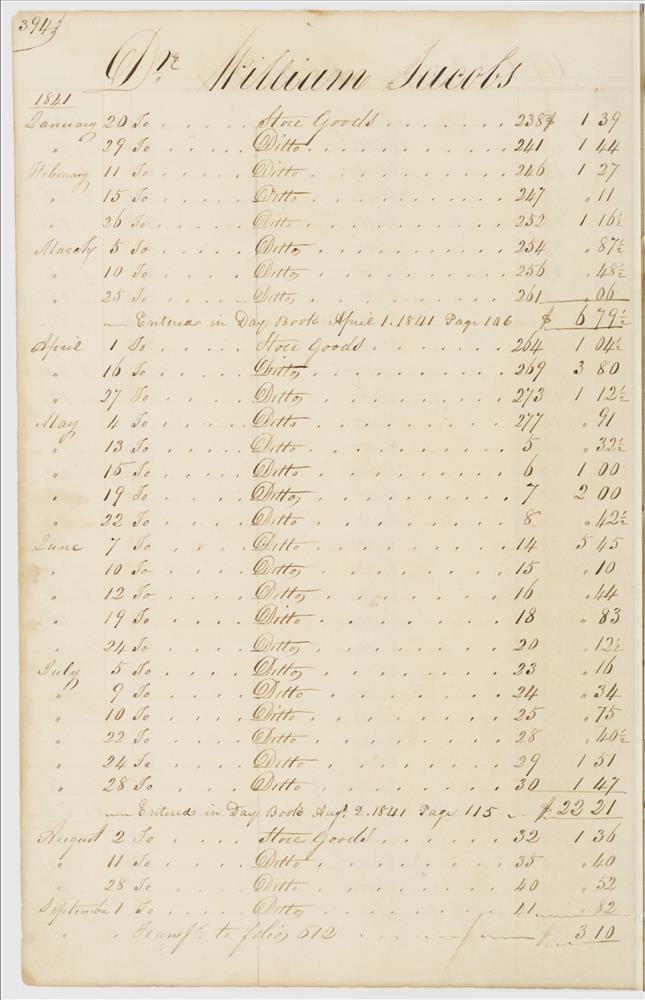 394
Dr William Jacobs
1841
January 20 To . . . . . Store Goods . . . . . . . 238 $ 1 39
" 29 To . . . . . Ditto . . . . . . . . . 241 1 44
February 11 To . . . . . Ditto . . . . . . . . . 246 1 27
" 15 To . . . . . Ditto . . . . . . . . . 247 " 11
" 26 To . . . . . Ditto . . . . . . . . . 252 1 16½
March 5 To . . . . . Ditto . . . . . . . . . 254 " 87½
" 10 To . . . . . Ditto . . . . . . . . . 256 " 48½
" 25 To . . . . . Ditto . . . . . . . . . 261 " 06
Entered in Day Book April 1. 1841 Page 106 $ 6 79½
April 1 To . . . . . Store Goods . . . . . . . 264 1 04½
" 16 To . . . . . Ditto . . . . . . . . . 269 3 80
" 27 To . . . . . Ditto . . . . . . . . . 273 1 12½
May 4 To . . . . . Ditto . . . . . . . . . 277 " 91
" 13 To . . . . . Ditto . . . . . . . . . 5 " 32½
" 15 To . . . . . Ditto . . . . . . . . . 6 1 00
" 19 To . . . . . Ditto . . . . . . . . . 7 2 00
" 22 To . . . . . Ditto . . . . . . . . . 8 " 42½
June 7 To . . . . . Ditto . . . . . . . . . 14 5 45
" 10 To . . . . . Ditto . . . . . . . . . 15 " 10
" 12 To . . . . . Ditto . . . . . . . . . 16 " 44
" 19 To . . . . . Ditto . . . . . . . . . 18 " 83
" 24 To . . . . . Ditto . . . . . . . . . 20 " 12½
July 5 To . . . . . Ditto . . . . . . . . . 23 " 16
" 9 To . . . . . Ditto . . . . . . . . . 24 " 34
" 10 To . . . . . Ditto . . . . . . . . . 25 " 75
" 22 To . . . . . Ditto . . . . . . . . . 28 " 40½
" 24 To . . . . . Ditto . . . . . . . . . 29 1 51
" 28 To . . . . . Ditto . . . . . . . . . 30 1 47
Entered in Day Book Augt. 2. 1841 Page 115 $ 22 21
August 2 To . . . . Store Goods . . . . . . 32 1 36
" 11 To . . . . . Ditto . . . . . . . . . 35 " 40
" 28 To . . . . . Ditto . . . . . . . . . 40 " 52
September 1 To . . . . Ditto . . . . . . . . . 41 " 82
" " Transfr. to folio 612 $ 3 10